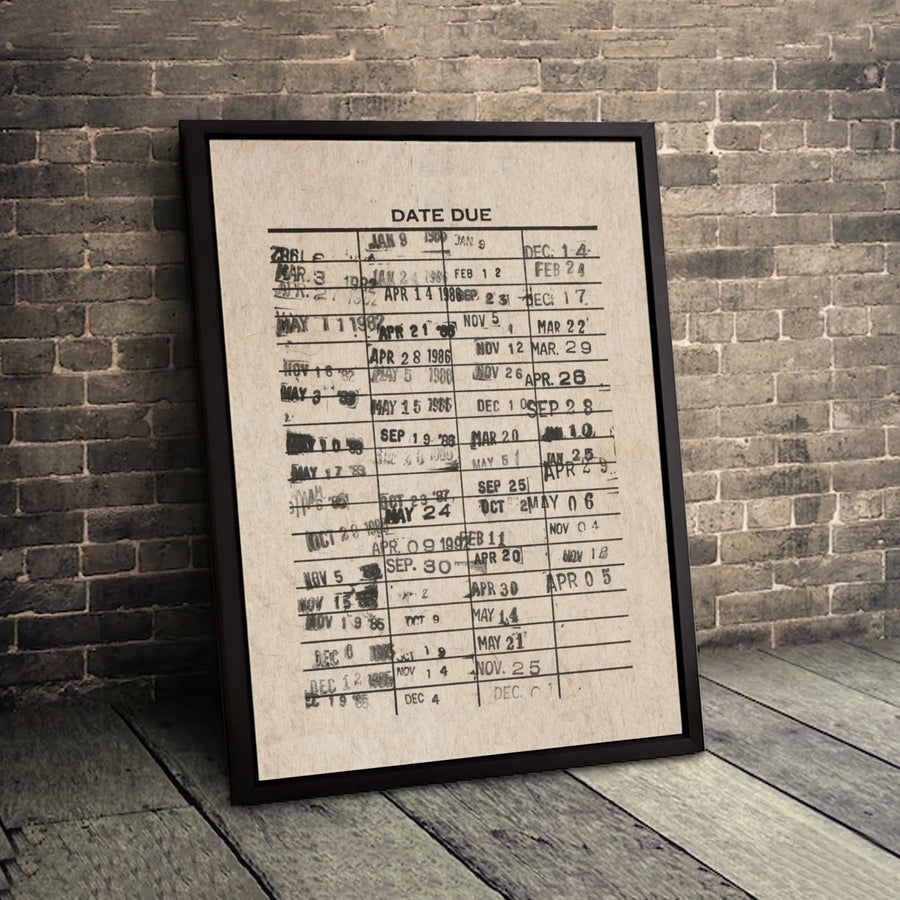 DATE DUE
MAR. 3 1982
MAY 11 1982
NOV 16
MAY 3
MAY 10 '83
MAY 17 '83
OCT 28
NOV 5
NOV 15
NOV 19 '85
DEC 6 1985
DEC 12 1985
19 '85
JAN 9 1986
JAN 24 1986
APR 14 1986
APR 21 '86
APR 28 1986
MAY 5 1986
MAY 15 1986
SEP 19 '86
OCT 23 '87
MAY 24
APR. 09 1992
SEP. 30
2
OCT 9
OCT 19
NOV 14
DEC 4
JAN 9
FEB 12
SEP 23
NOV 5
NOV 12
NOV 26
DEC 10
MAR 20
MAY 5
SEP 25
OCT 2
FEB 11
APR 20
APR 30
MAY 14
MAY 21
NOV. 25
DEC. 01
DEC. 14
FEB 24
DEC. 17
MAR 22
MAR. 29
APR. 26
SEP 28
JAN 10
JAN 25
APR 29
MAY 06
NOV 04
NOV 18
APR 05